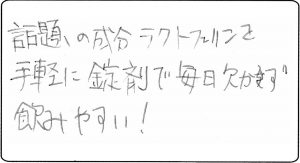 話題、の成分ラクトフェリンを
手軽に錠剤で毎日欠かさず
飲みやすい!